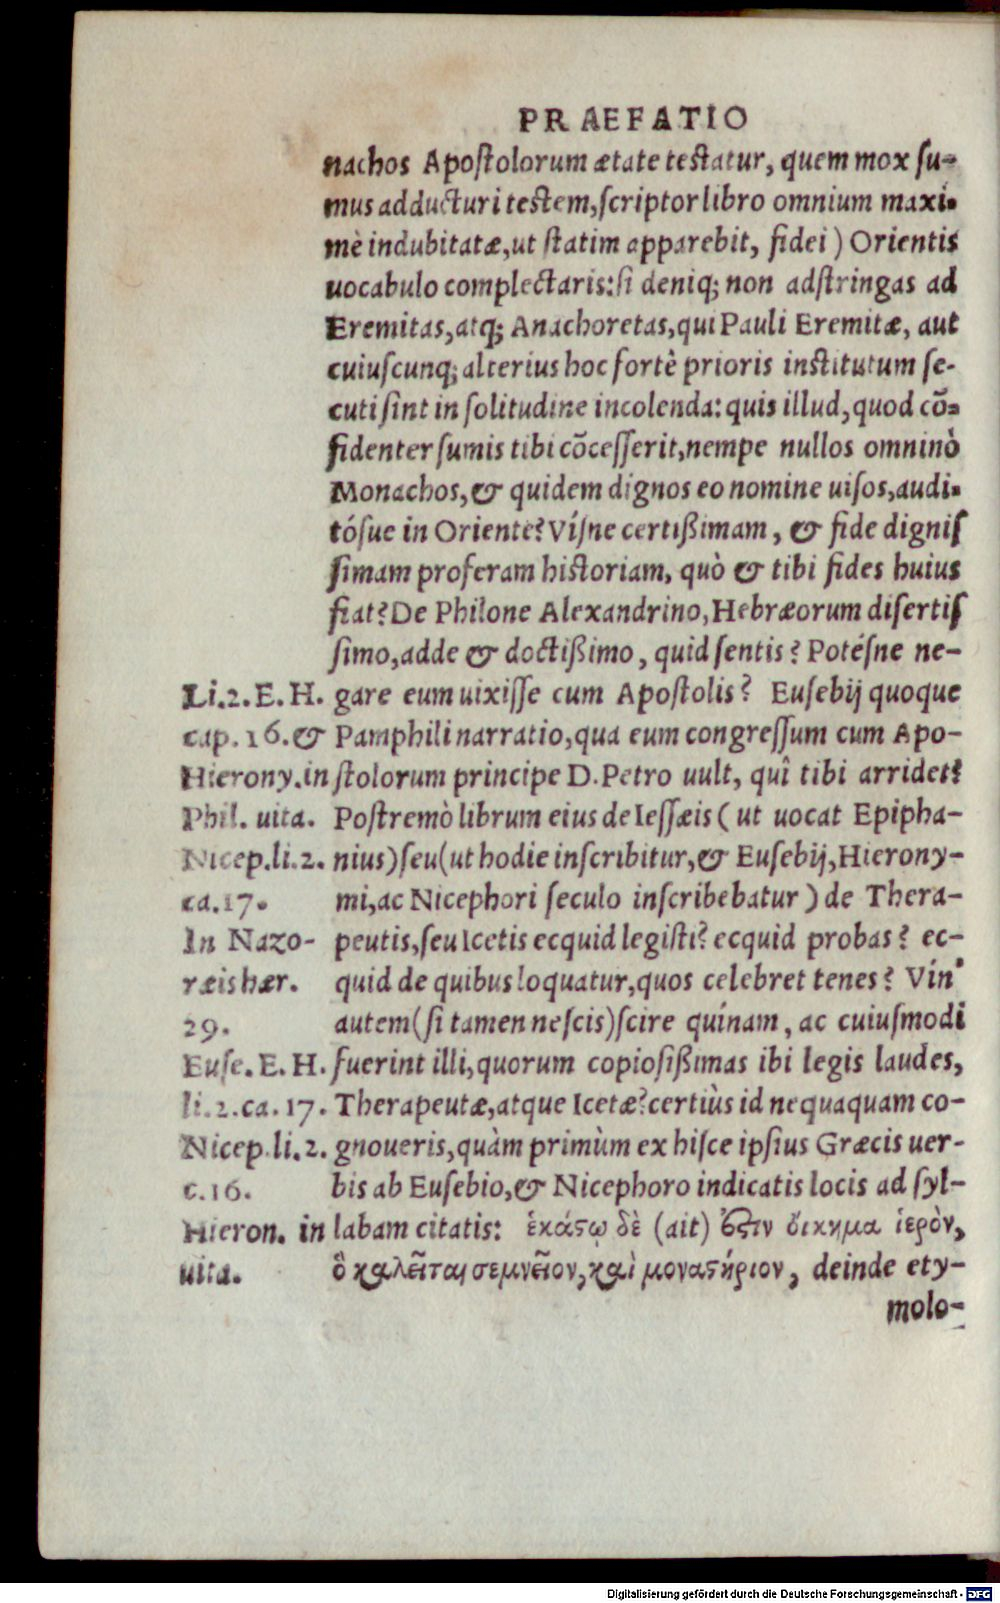 PRAEFATIO
nachos Apoſtolorum ætate teſtatur, quem mox ſu-
mus adducturi teſtem, ſcriptor libro omnium maxi-
mè indubitatæ, ut ſtatim apparebit, fidei) Orientis
uocabulo complectaris: ſi deniq; non adſtringas ad
Eremitas, atq; Anachoretas, qui Pauli Eremitæ, aut
cuiuſcunq; alterius hoc fortè prioris inſtitutum ſe-
cuti ſint in ſolitudine incolenda: quis illud, quod cõ-
fidenter ſumis tibi cõceſſerit, nempe nullos omninò
Monachos, & quidem dignos eo nomine uiſos, audi-
tóſue in Oriente? Víſne certißimam, & fide digniſ
ſimam proferam hiſtoriam, quò & tibi fides huius
fiat? De Philone Alexandrino, Hebræorum diſertiſ
ſimo, adde & doctißimo, quid ſentis? Potéſne ne-
Li.2.E.H. gare eum uixiſſe cum Apoſtolis? Euſebij quoque
cap.16.& Pamphili narratio, qua eum congreſſum cum Apo-
Hierony.in ſtolorum principe D. Petro uult, quî tibi arridet?
Phil. uita. Poſtremò librum eius de Ieſſæis (ut uocat Epipha-
Nicep.li.2. nius) ſeu (ut hodie inſcribitur, & Euſebij, Hierony-
ca.17. mi, ac Nicephori ſeculo inſcribebatur) de Thera-
In Nazo- peutis, ſeu Icetis ecquid legiſti? ecquid probas? ec-
ræis hær. quid de quibus loquatur, quos celebret tenes? Vín'
29. autem (ſi tamen neſcis) ſcire quínam, ac cuiuſmodi
Euſe.E.H. fuerint illi, quorum copioſißimas ibi legis laudes,
li.2.ca.17. Therapeutæ, atque Icetæ? certiùs id nequaquam co-
Nicep.li.2. gnoueris, quàm primùm ex hiſce ipſius Græcis uer-
c.16. bis ab Euſebio, & Nicephoro indicatis locis ad ſyl-
Hieron. in labam citatis: ἑκάςῳ δὲ (ait) ὅςιν ὄικημα ἱερὸν,
uita. ὃ καλεῖται σεμνεῖον, καὶ μοναςήριον, deinde ety-
molo-
Digitalisierung gefördert durch die Deutsche Forschungsgemeinschaft - DFG